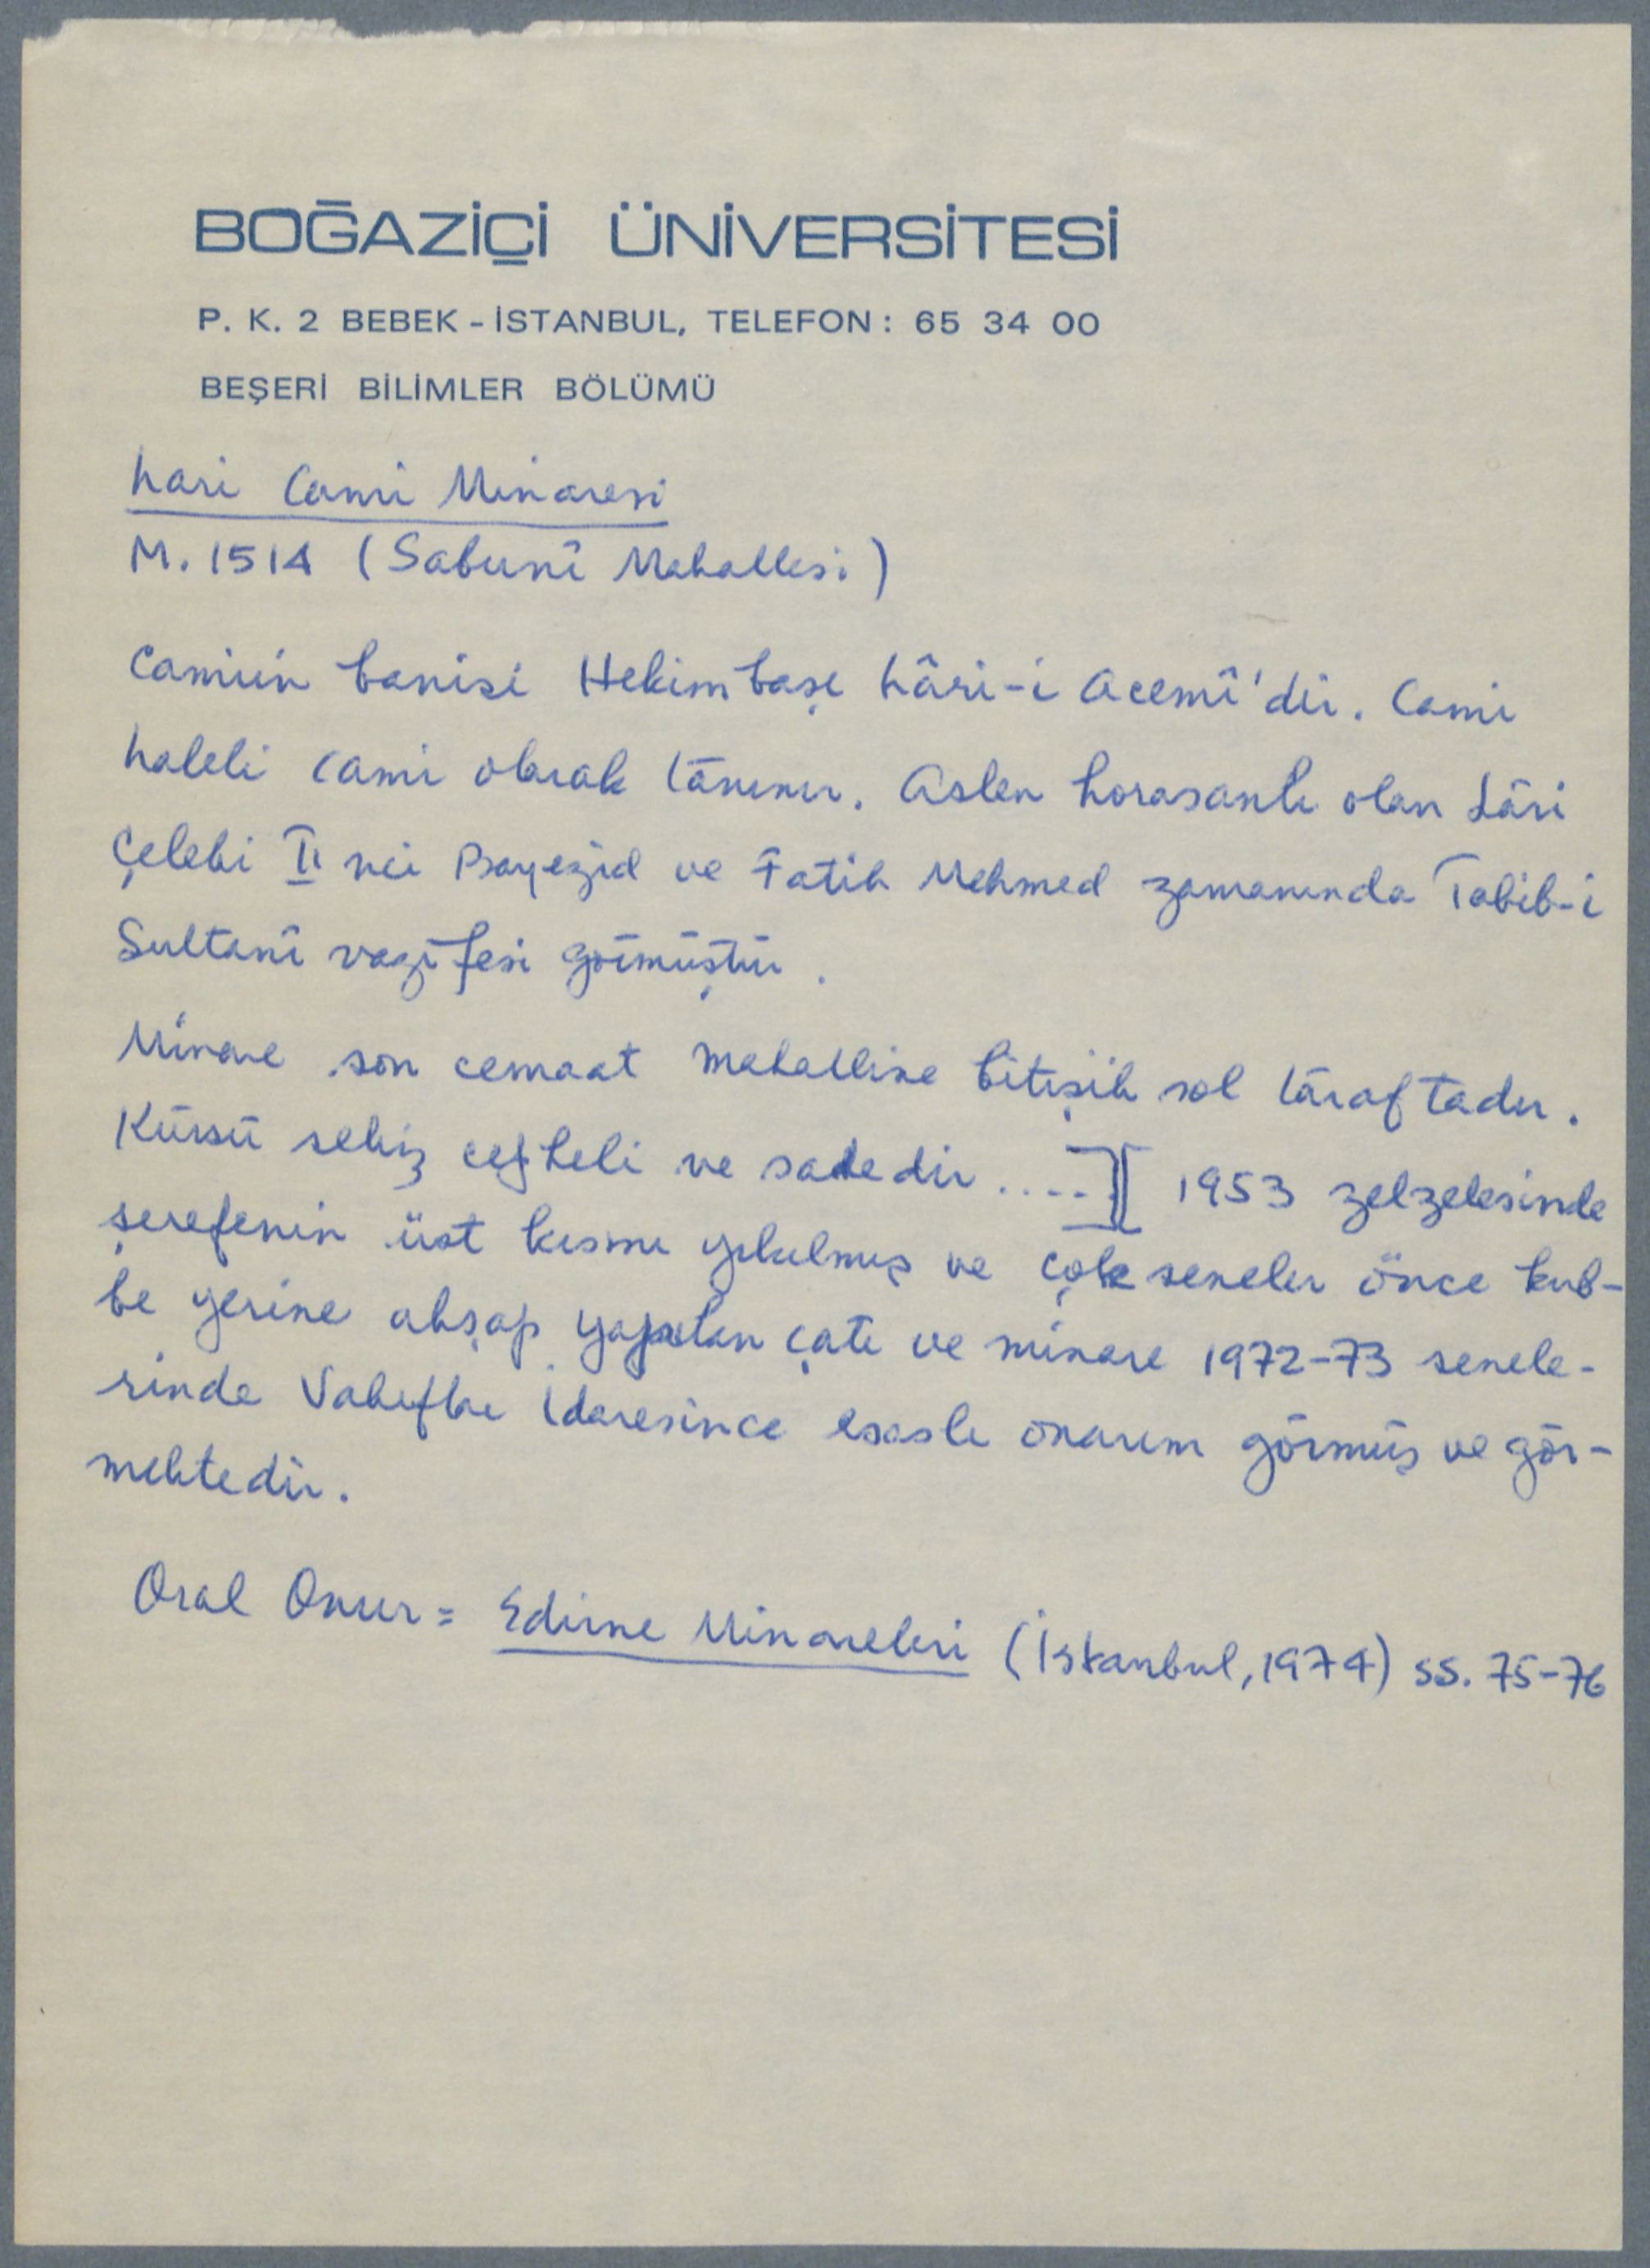 BOĞAZİÇİ ÜNİVERSİTESİ
P. K. 2 BEBEK - İSTANBUL, TELEFON : 65 34 00
BEŞERİ BİLİMLER BÖLÜMÜ
Lari Cami Minaresi
M. 1514 (Sabunî Mahallesi)
Camiin banisi Hekimbaşı Lâri-i Acemî'dir. Cami
Laleli cami olarak tanınır. Aslen horasanlı olan Lâri
Çelebi II nci Bayezid ve Fatih Mehmed zamanında Tabib-i
Sultanî vazifesi görmüştür.
Minare son cemaat mahalline bitişik sol taraftadır.
Kürsü sekiz cepheli ve sadedir .....][ 1953 zelzelesinde
şerefenin üst kısmı yıkılmış ve çok seneler önce kub-
be yerine ahşap yapılan çatı ve minare 1972-73 senele-
rinde Vakıflar İdaresince esaslı onarım görmüş ve gör-
mektedir.
Oral Onur = Edirne Minareleri (İstanbul, 1974) ss. 75-76